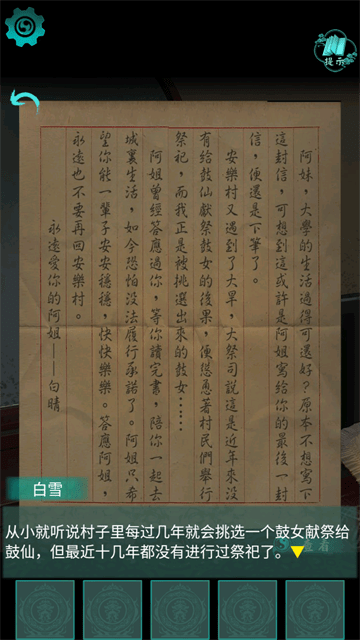 提示
阿妹，大學的生活過得可還好？原本不想寫下
這封信，可想到這或許是阿姐寫給你的最後一封
信，便還是下筆了。
安樂村又遇到了大旱，大祭司說這是近年來沒
有給鼓仙獻祭鼓女的後果，便慫恿著村民們舉行
祭祀，而我正是被挑選出來的鼓女……
阿姐曾經答應過你，等你讀完書，陪你一起去
城裏生活，如今恐怕沒法履行承諾了。阿姐只希
望你能一輩子安安穩穩，快快樂樂。答應阿姐，
永遠也不要再回安樂村。
永遠愛你的阿姐——白晴
白雪
从小就听说村子里每过几年就会挑选一个鼓女献祭给
鼓仙，但最近十几年都没有进行过祭祀了。
查看